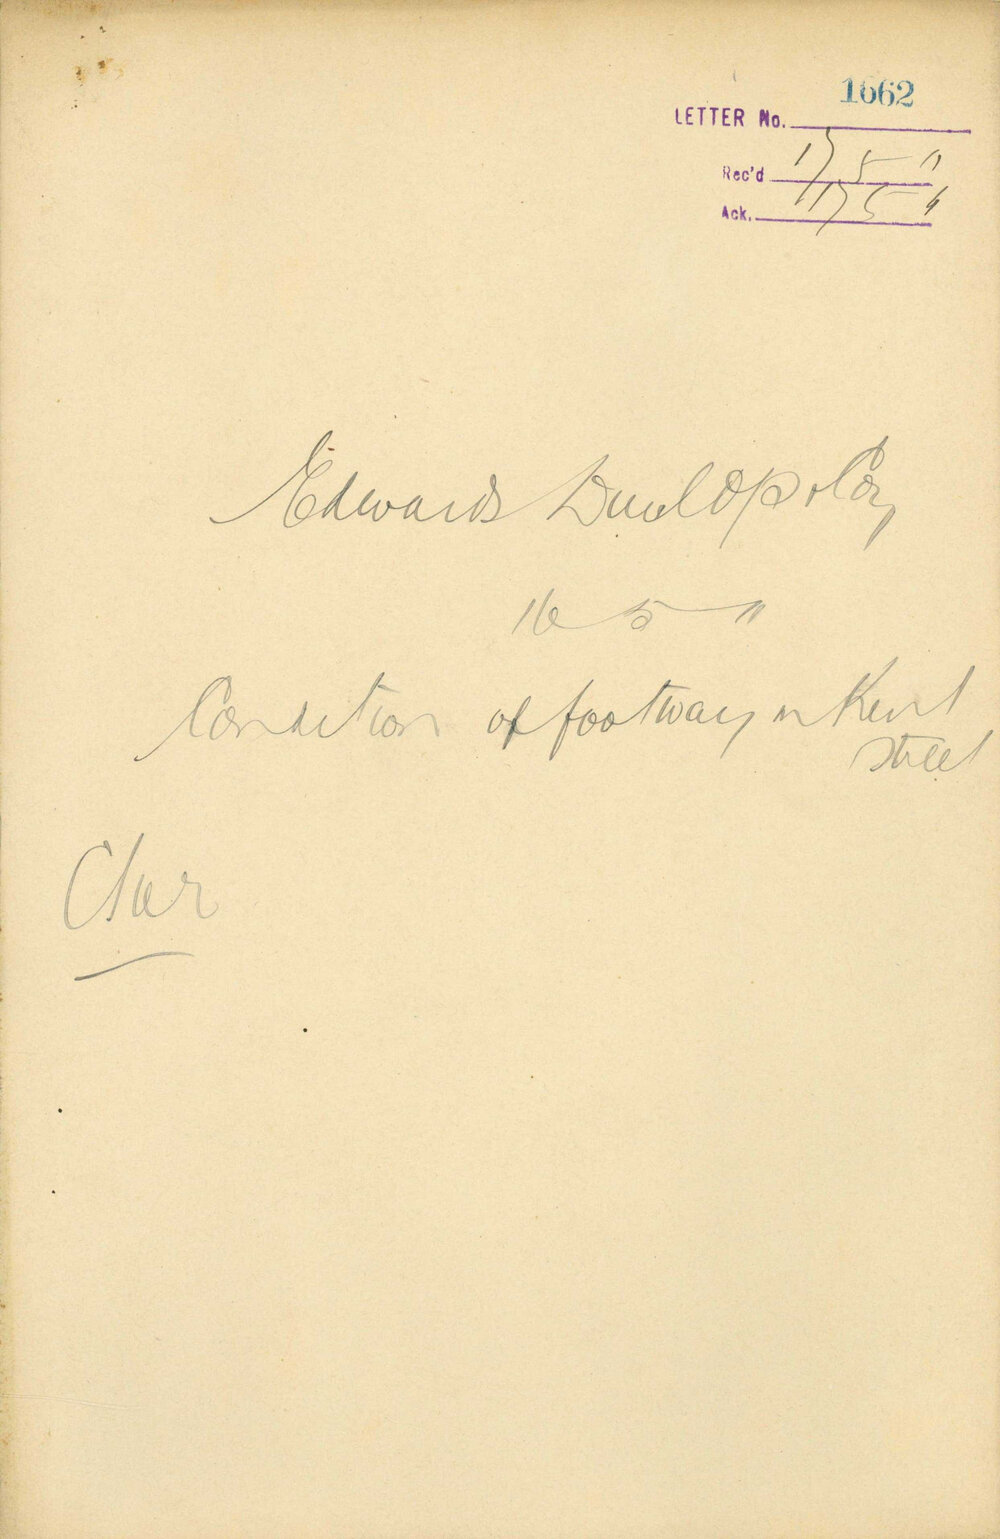 1662
LETTER No.
Rec'd 17 5 11
Ack. 17 5 11
Edwards Dunlop & Coy
16 5 11
Condition of footway in Kent
Street